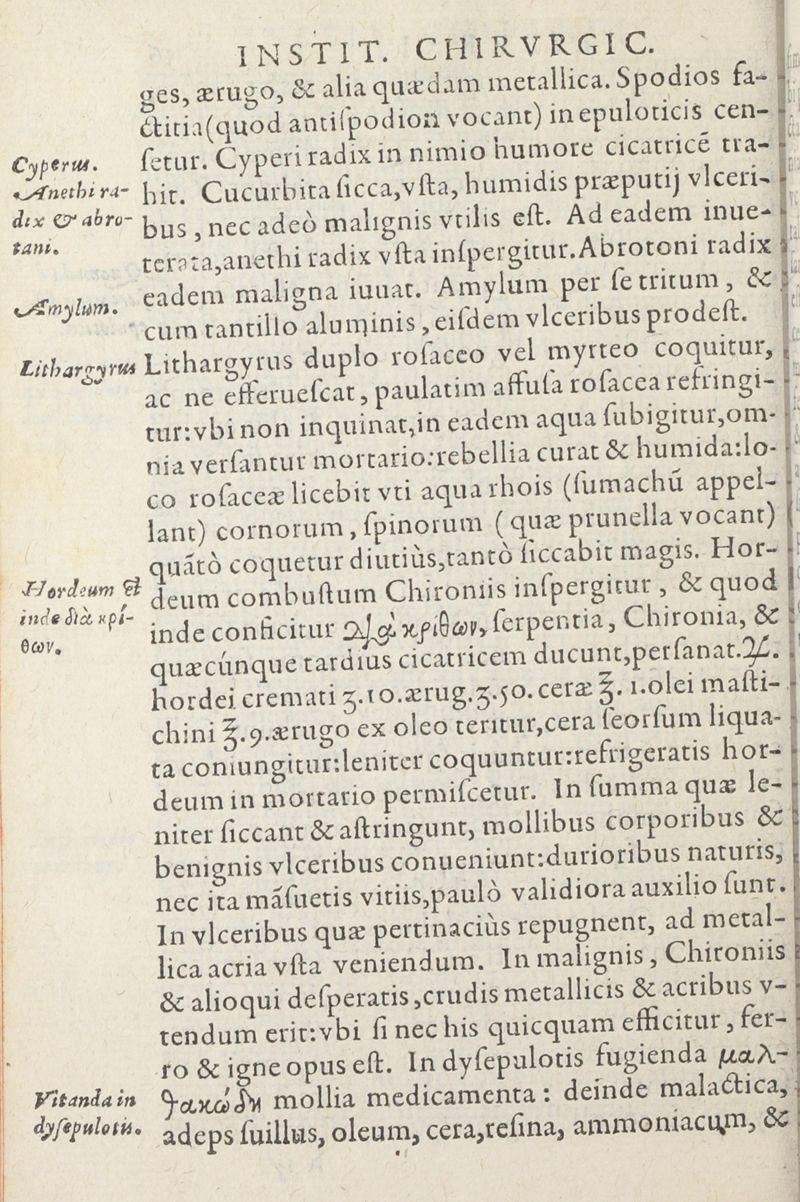 INSTIT. CHIRVRGIC.
ges, ærugo, & alia quædam metallica. Spodios fa-
ctitia (quod antiſpodion vocant) in epuloticis cen-
Cyperus.
ſetur. Cyperi radix in nimio humore cicatricē tra-
Anethi ra-
hit. Cucurbita ſicca, vſta, humidis præputij vlceri-
dix & abro-
bus, nec adeò malignis vtilis eſt. Ad eadem inue-
tani.
terata, anethi radix vſta inſpergitur. Abrotoni radix
eadem maligna iuuat. Amylum per ſe tritum, &
Amylum.
cum tantillo aluminis, eiſdem vlceribus prodeſt.
Lithargyrus
Lithargyrus duplo roſaceo vel myrteo coquitur,
ac ne efferueſcat, paulatim affuſa roſacea refringi-
tur: vbi non inquinat, in eadem aqua ſubigitur, om-
nia verſantur mortario: rebellia curat & humida: lo-
co roſaceæ licebit vti aqua rhois (ſumachū appel-
lant) cornorum, ſpinorum (quæ prunella vocant)
quātò coquetur diutiùs, tantò ſiccabit magis. Hor-
Hordeum &
deum combuſtum Chironiis inſpergitur, & quod
inde διὰ κρι-
inde conficitur διὰ κριθων, ſerpentia, Chironia, &
θων.
quæcúnque tardiùs cicatricem ducunt, perſanat. ℞.
hordei cremati ʒ. 10. ærug. ʒ. 50. ceræ ℥. 1. olei maſti-
chini ℥. 9. ærugo ex oleo teritur, cera ſeorſum liqua-
ta coniungitur: leniter coquuntur: refrigeratis hor-
deum in mortario permiſcetur. In ſumma quæ le-
niter ſiccant & aſtringunt, mollibus corporibus &
benignis vlceribus conueniunt: durioribus naturis,
nec ita māſuetis vitiis, paulò validiora auxilio ſunt.
In vlceribus quæ pertinaciùs repugnent, ad metal-
lica acria vſta veniendum. In malignis, Chironiis
& alioqui deſperatis, crudis metallicis & acribus v-
tendum erit: vbi ſi nec his quicquam efficitur, fer-
ro & igne opus eſt. In dyſepulotis fugienda μαλ-
Vitanda in
θακώδη mollia medicamenta: deinde malactica,
dyſepulotis.
adeps ſuillus, oleum, cera, reſina, ammoniacum, &